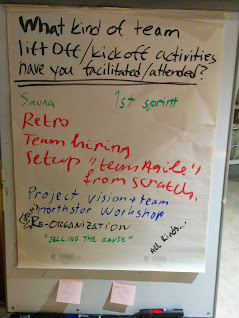 What kind of team
lift off/kickoff activities
have you facilitated/attended?
Sauna 1st sprint
Retro
Team hiring
Setup "team Agile"
from scratch.
Project vision + team
+ northstar Workshop
RE-ORGANIZATION
"SELLING THE CAUSE"
All kinds....